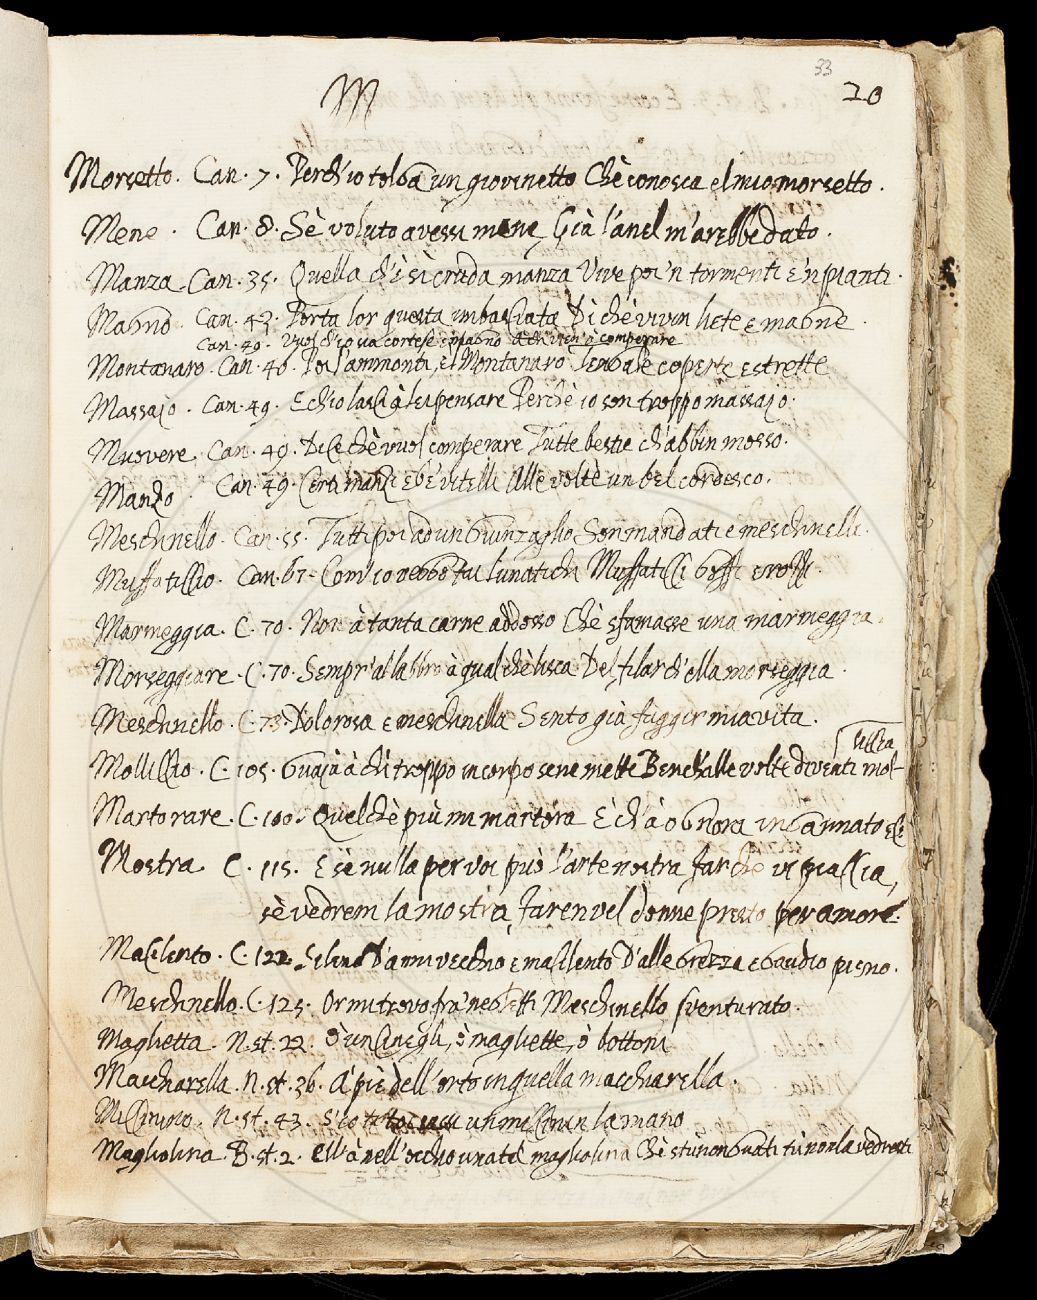 33
M 20
Morsetto. Can. 7. Perch'io tolga un giovinetto Chè conosca el mio morsetto.
Mene. Can. 8. Sè voluto avessi mene Già l'anel m'arebbe dato.
Manza Can. 35. Quella ch'è sì cruda manza Vive poi 'n tormenti e 'n pianti.
Magno. Can. 43. Porta lor questa imbasciata Di chè vivin liete e magne.
Can. 49. Vuol ch'io sia cortese e magno A chi vien à comperare
Montanaro. Can. 46. Poi l'ammonta, el Montanaro Tengale coperte e strette
Massajo. Can. 49. E ch'io lasci à lei pensare Perchè io son troppo massajo.
Muovere. Can. 49. Dice chè vuol comperare Tutte bestie ch'abbin mosso.
Manzo. Can. 49. Certi manzi e be' vitelli Alle volte un bel cordesco.
Meschinello. Can. 55. Tutti poi ad un guinzaglio Son mandati e meschinelli.
Muffaticcio. Can. 67. Com' io veggo tu lunatichi Muffaticci goffi e rozzi.
Marmeggia. C. 70. Non à tanta carne addosso Chè sfamasse una marmeggia.
Morseggiare. C. 70. Sempr' al labbro à qualchè lisca Del filar ch'ella morseggia.
Meschinello. C. 73. Dolorosa e meschinella Sento già fuggir mia vita.
Molliccio. C. 105. Guaja à chi troppo in corpo sene mette Bench'alle volte diventi mol-
liccia
Martorare. C. 100. Quel chè più mi martora È ch'à ognora ingannato
Mostra. C. 115. E sè nulla per voi può l'arte nostra far che vi piaccia,
sè vedrem la mostra, farenvel donne presto per amore.
Macilento. C. 122. Sileno d'anni vecchio e macilento D'allegrezza e gaudio pieno.
Meschinello. C. 125. Or mi trovo fra' negletti Meschinello sventurato.
Maghetta. N. st. 22. ò maghette, ò bottoni
Macchiarella. N. st. 36. A' piè dell'orto in quella macchiarella.
N. st. 43. S'io un in la mano
Magliolina. B. st. 2. Ell'à nell'occhio una tal magliolina Chè stù non guati tù non la vedresti